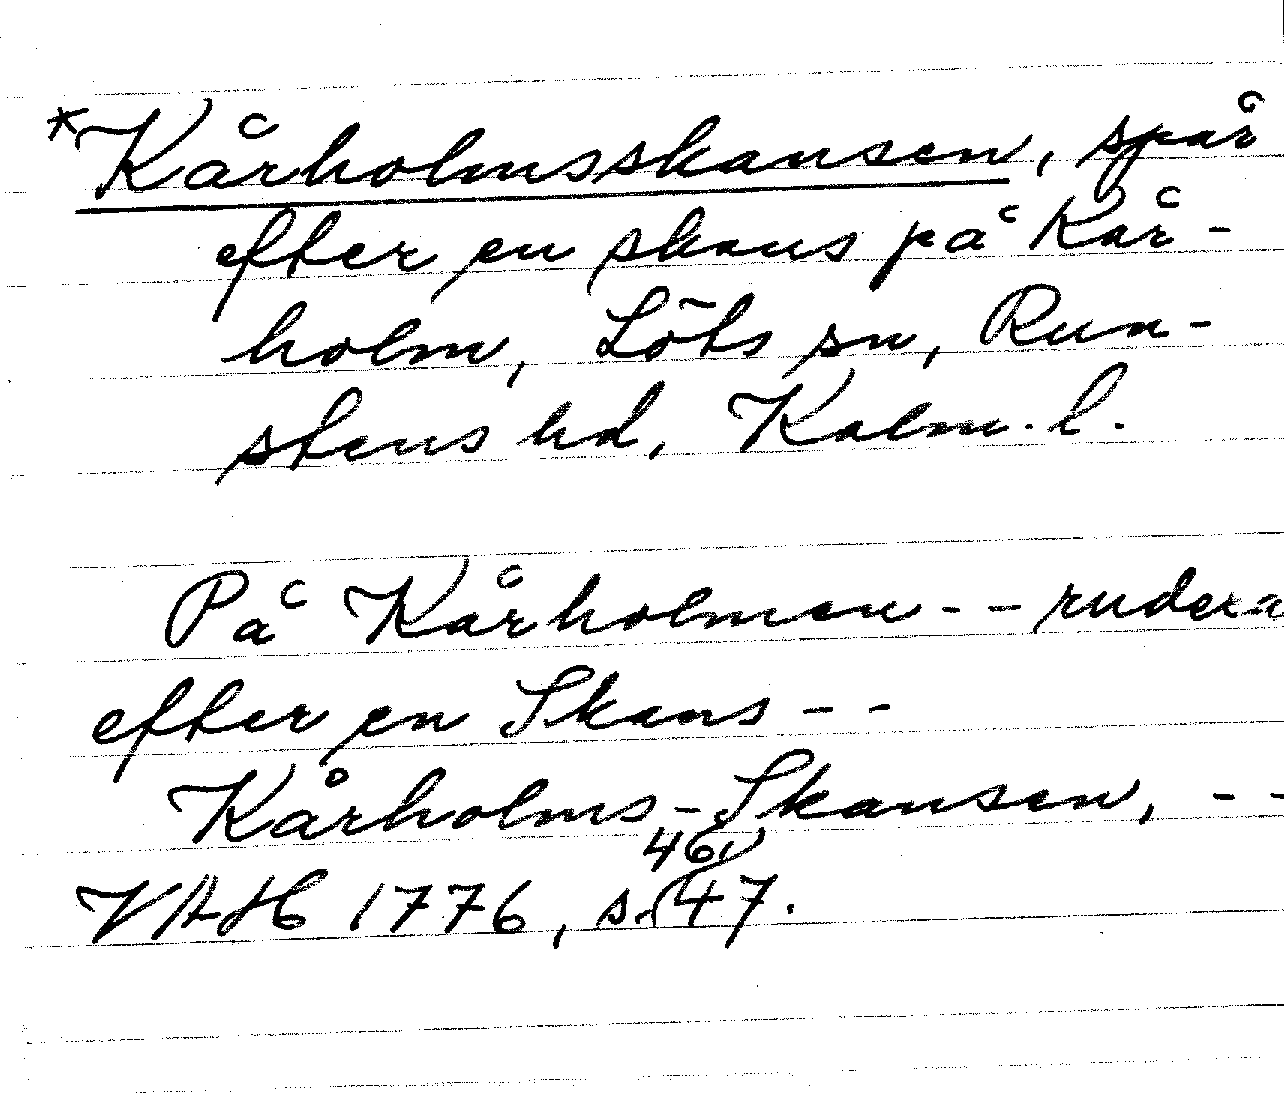 *Kårholmsskansen, spår
efter en skans på Kår-
holm, Löts sn, Run-
stens hd, Kalm. l.
På Kårholmen -- rudera
efter en Skans --
Kårholms-Skansen, --
VAH 1776, s. 46, 47.